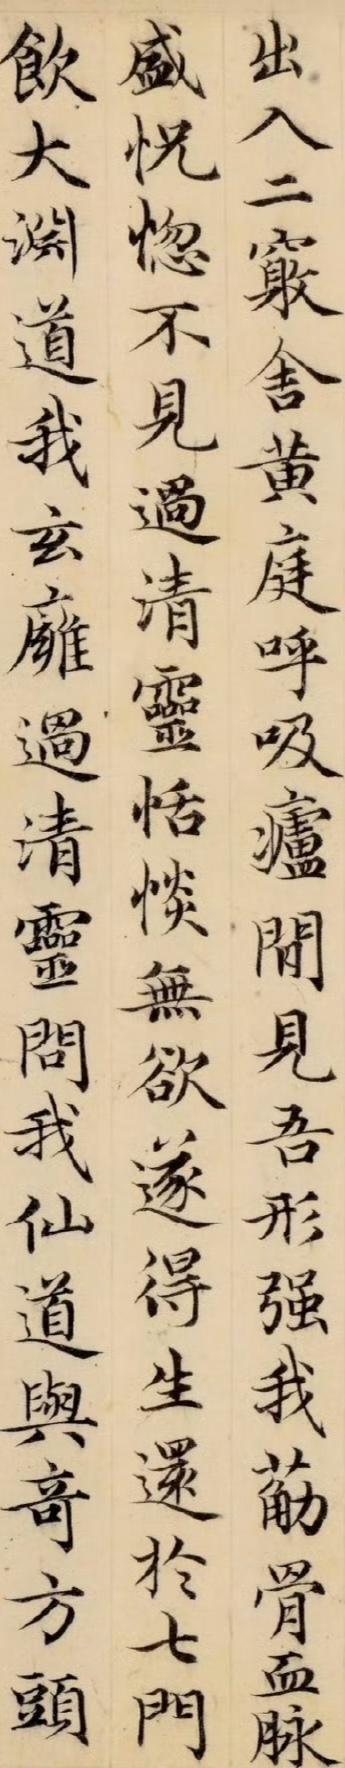 出入二竅舍黄庭呼吸廬間見吾形强我筋骨血脉
盛怳惚不見過清靈恬惔無欲遂得生還於七門
飲大淵道我玄廱過清靈問我仙道與奇方頭